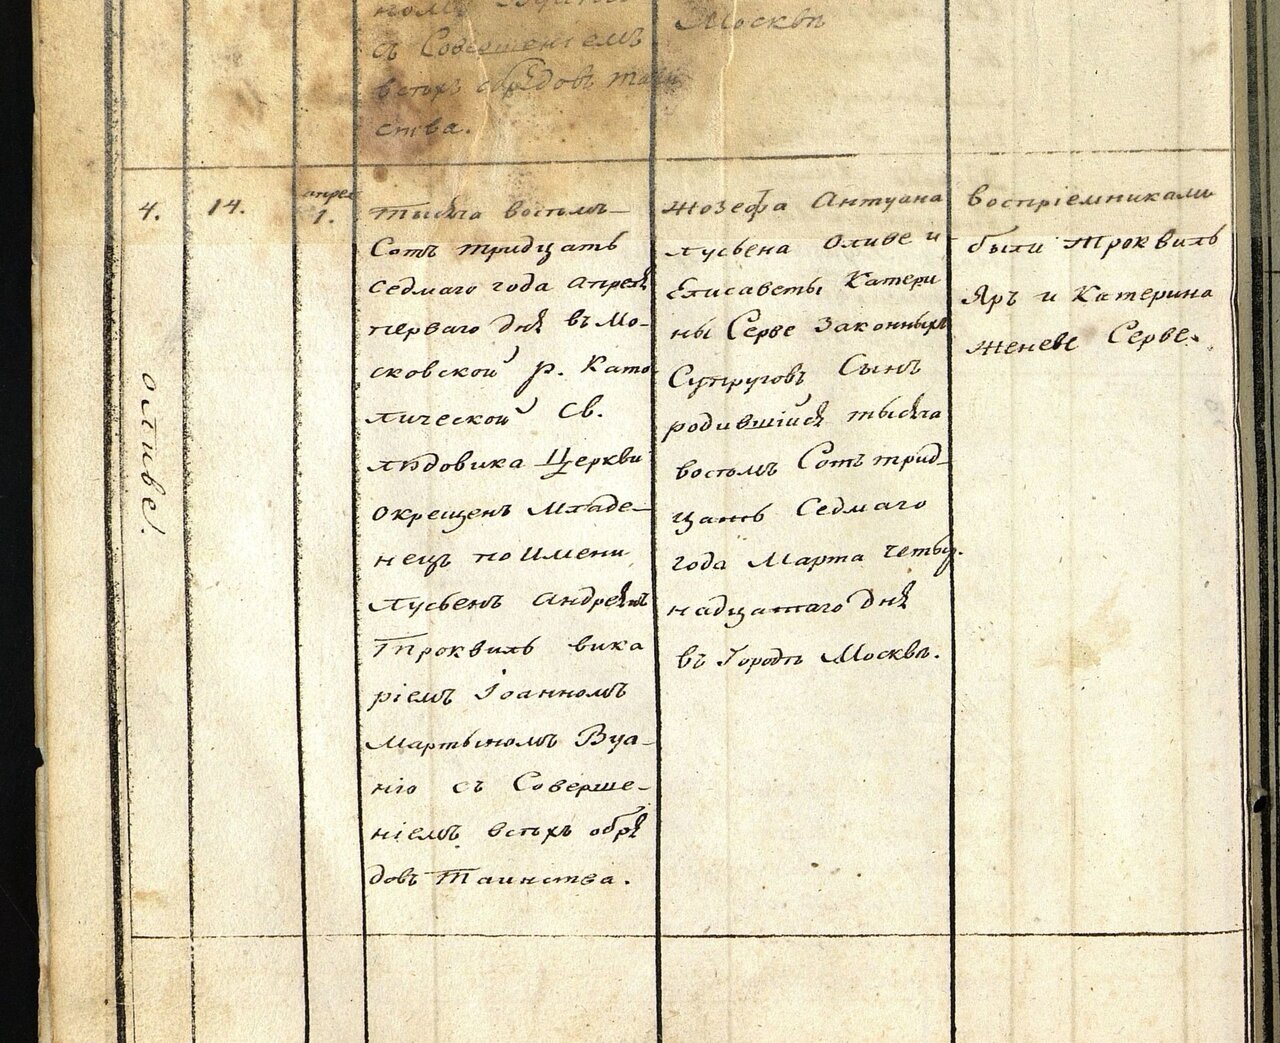 съ Совершеніемъ
всѣхъ обрядовъ таин
ства.
Москвѣ
4.
14.
апрел
1.
оливе.
тысяча восемь-
Сотъ тридцать
Седмаго года апреля
перваго дня въ Мо-
сковской р. Като
лической Св.
людовика Церкви
окрещенъ Младе-
нецъ по имени
лусьенъ андреянъ
Троквиль вика
ріемъ Іоанномъ
мартыномъ Вуа-
ніо съ Соверше-
ніемъ всѣхъ обря
довъ Таинства.
жозефа Антуана
лусьена оливе и
Елисаветы Катери
ны Серве Законныхъ
Супруговъ Сынъ
родившійся тысяча
восемь Сотъ трид-
цать Седмаго
года Марта четыр.
надцатаго дня
въ Городѣ Москвѣ.
воспріемниками
были Троквиль
Яръ и Катерина
женеве Серве.